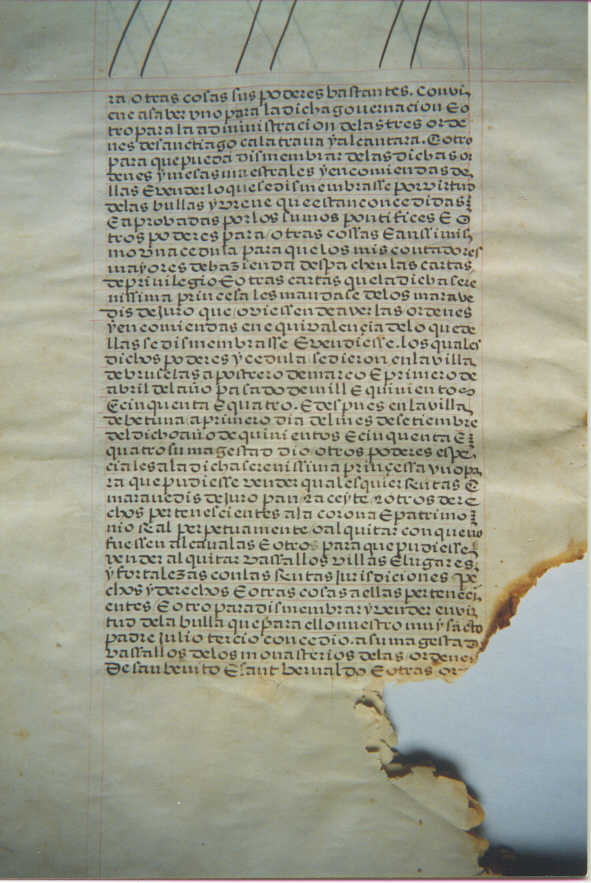 ra otras cosas sus poderes bastantes. Convi
ene a saber vno para la dicha governacion E o
tro para la administracion de las tres orde
nes de sanctiago calatrava y alcantara. E otro
para que pueda dismembrar de las dichas or
denes y mesas maestrales y encomiendas de
llas E vender lo que se dismembrasse por virtud
de las bullas y breve que estan concedidas
E aprovadas por los sumos pontifices E o
tros poderes para otras cossas E ansi mis
mo vna cedula para que los mis contadores
mayores de hazienda despachen las cartas
de privilegio E otras cartas que la dicha sere
nissima princesa les mandase de los marave
dis de Juro que oviessen de aver las ordenes
y encomiendas en equivalençia de lo que de
llas se dismembrasse E vendiesse. los quales
dichos poderes y cedula se dieron en la villa
de bruselas a postrero de março E primero de
abril del año pasado de mill E quinientos
E cinquenta E quatro. E despues en la villa
de betuna a primero dia del mes de setiembre
del dicho año de quinientos E cinquenta E
quatro su magestad dio otros poderes espe
ciales a la dicha serenissima princessa vno pa
ra que pudiesse vender qualesquier Rentas E
maravedis de Juro pan ra ceyte r otros dere
chos pertenescientes a la corona E patrimo
nio Real perpetuamente o al quitar con que no
fuessen alcavalas E otro para que pudiesse
vender al quitar vassallos villas E lugares
y fortalezas con las Rentas Jurisdiciones pe
chos y derechos E otras cosas a ellas perteneci
entes E otro para dismembrar y vender en vir
tud de la bulla que para ello nuestro muy sancto
padre Julio tercio concedio. a su magestad
vassallos de los monasterios de las ordenes
De san benito E sant bernaldo E otras or